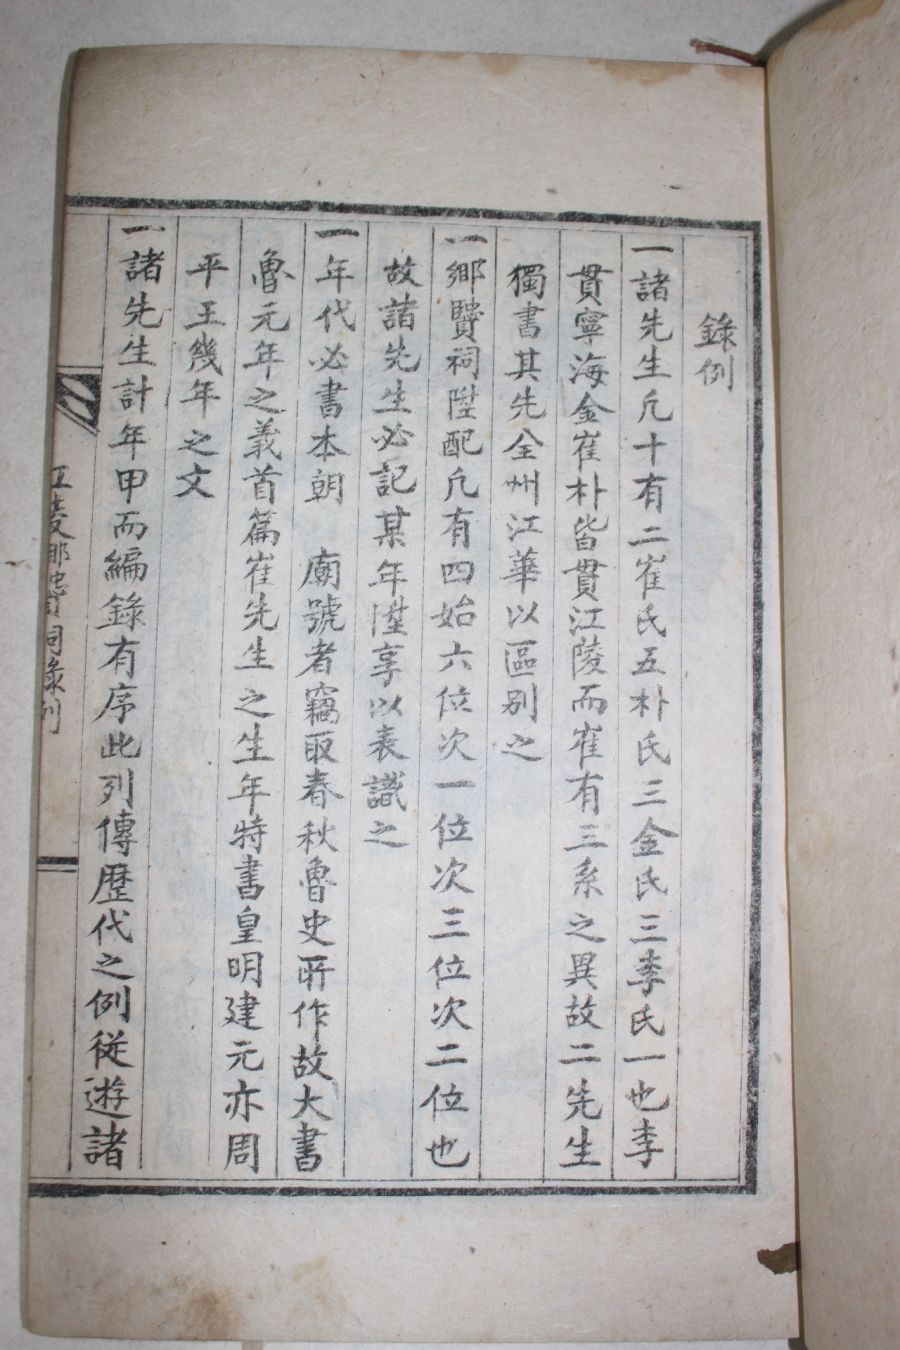 錄例
一諸先生凡十有二崔氏五朴氏三金氏三李氏一也李
貫寧海金崔朴皆貫江陵而崔有三系之異故二先生
獨書其先全州江華以區別之
一鄉賢祠陞配凡有四始六位次一位次三位次二位也
故諸先生必記某年陞享以表識之
一年代必書本朝　廟號者竊取春秋魯史所作故大書
魯元年之義首篇崔先生之生年特書皇明建元亦周
平王幾年之文
一諸先生計年甲而編錄有序此列傳歷代之例從遊諸
江陵鄉賢祠錄例